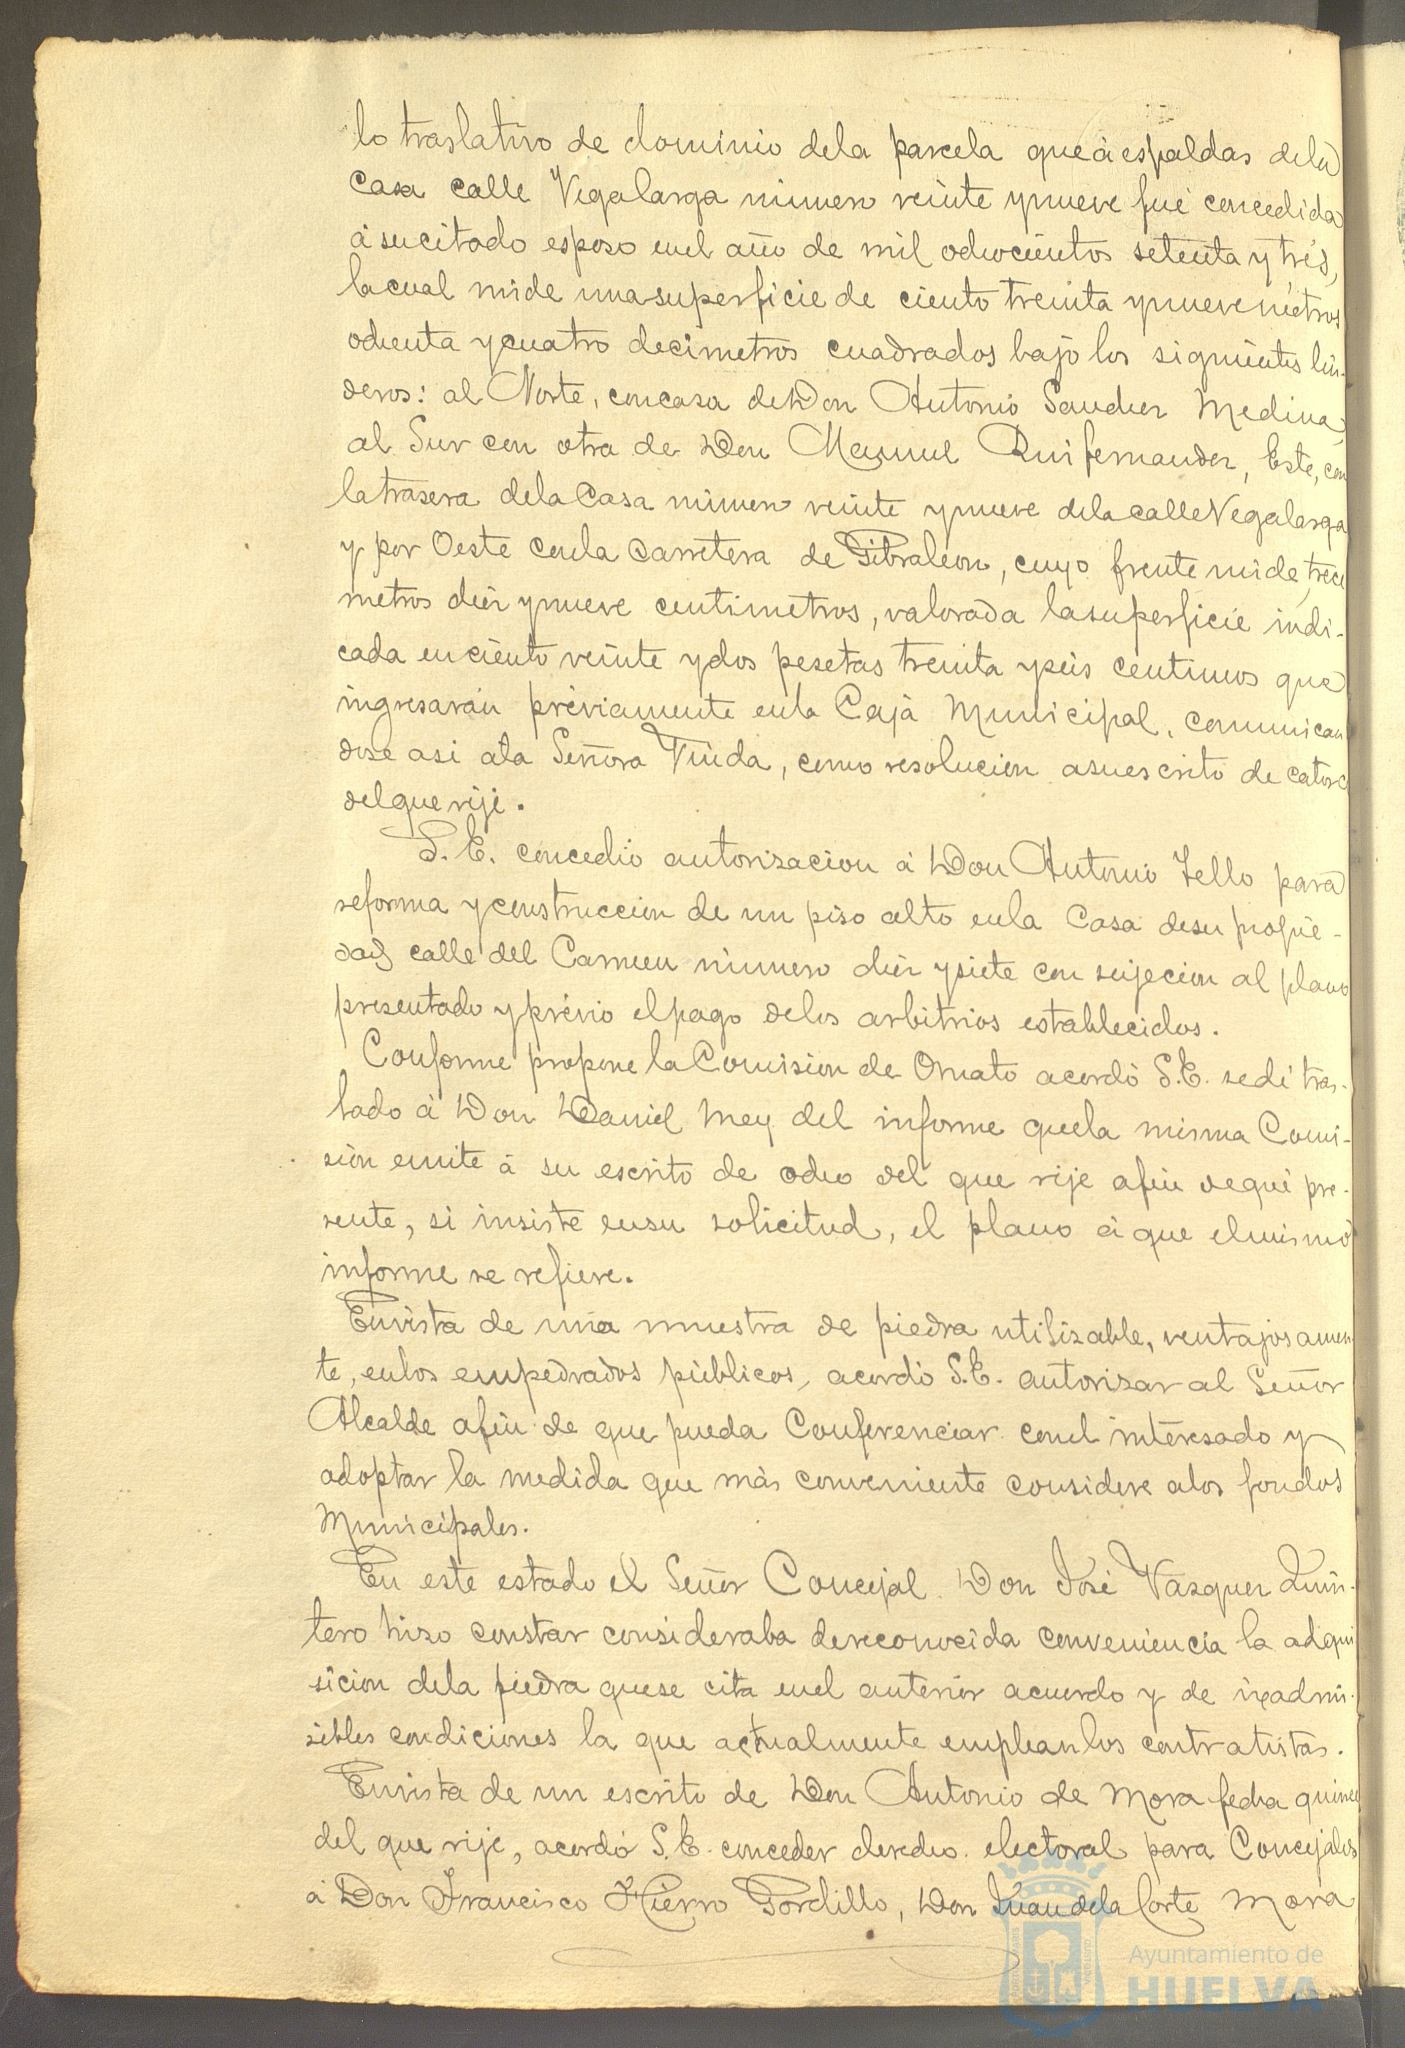 lo traslativo de dominio dela parcela que á espaldas dela
Casa calle Vegalarga número veinte y nueve fué concedida
á su citado esposo enel año de mil ochocientos setenta y trés,
la cual mide una superficie de ciento treinta y nueve métros
ochenta y cuatro decimetros cuadrados bajo los siguientes lin-
deros: al Norte, con casa de Don Antonio Sanchez Medina,
al Sur con otra de Don Manuel Ruifernandez, Este, con
la trasera dela Casa número veinte y nueve dela calle Vegalarga
y por Oeste conla Carretera de Gibraleon, cuyo frente mide, trece
metros diez y nueve centimetros, valorada la superficie indi-
cada en ciento veinte y dos pesetas treinta y seis centimos que
ingresarán préviamente enla Caja Municipal, comunican
dose asi ala Señora Viuda, como resolucion a su escrito de catorce
del que rije.
S. E. concedió autorizacion á Don Antonio Tello para
reforma y construccion de un piso alto enla Casa desu propie-
dad calle del Carmen número diez y siete con sujecion al plano
presentado y prévio el pago delos arbitrios establecidos.
Conforme propone la Comision de Ornato acordó S.E. se dé tras-
lado á Don Daniel Mey del informe quela misma Comi-
sión emite á su escrito de ocho del que rije afin de que pre-
sente, si insiste ensu solicitud, el plano á que el mismo
informe se refiere.
En vista de una muestra de piedra utilizable, ventajosamen-
te, enlos empedrados públicos, acordó S.E. autorizar al Señor
Alcalde afin de que pueda Conferenciar conel interesado y
adoptar la medida que más conveniente considere alos fondos
Municipales.
En este estado el Señor Concejal Don José Vazquez Quin-
tero hizo constar consideraba de reconocida conveniencia la adqui
sicion dela piedra que se cita enel anterior acuerdo y de inadmi-
sibles condiciones la que actualmente emplean los contratistas.
En vista de un escrito de Don Antonio de Mora fecha quince
del que rije, acordó S.E. conceder derecho electoral para Concejales
á Don Francisco Hierro Gordillo, Don Juan dela Corte Mora
Ayuntamiento de
HUELVA